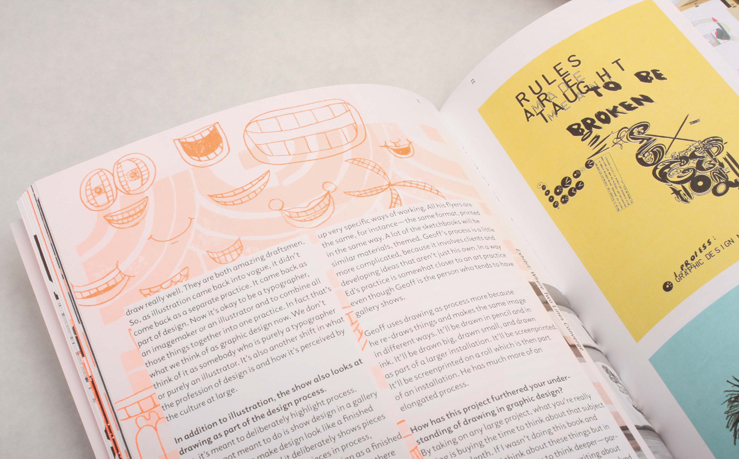 draw really well. They are both amazing draftsmen.
So, as illustration came back into vogue, it didn't
come back as a separate practice. It came back as
part of design. Now it's okay to be a typographer,
an imagemaker or an illustrator and to combine all
those things together into one practice. In fact that's
what we think of as graphic design now. We don't
think of it as somebody who is purely a typographer
or purely an illustrator. It's also another shift in what
the profession of design is and how it's perceived by
the culture at large.
In addition to illustration, the show also looks at
drawing as part of the design process.
it's meant to deliberately highlight process.
not meant to do is show design in a gallery
make design look like a finished
it deliberately shows pieces
pieces in process,
as a finished
there
up very specific ways of working. All his flyers are
the same, for instance—the same format, printed
in the same way. A lot of the sketchbooks will be
similar materials, themed. Geoff's process is a little
more complicated, because it involves clients and
developing ideas that aren't just his own. In a way
Ed's practice is somewhat closer to an art practice
even though Geoff is the person who tends to have
gallery shows.
Geoff uses drawing as process more because
he re-draws things and makes the same image
in different ways. It'll be drawn in pencil and in
ink. It'll be drawn big, drawn small, and drawn
as part of a larger installation. It'll be screenprinted.
It'll be screenprinted on a roll which is then part
of an installation. He has much more of an
elongated process.
How has this project furthered your under-
standing of drawing in graphic design?
By taking on any large project, what you're really
is buying the time to think about that subject
depth. If I wasn't doing this book and
think about these things but in
to think deeper—par-
writing about
RULES
ARE
TAUGHT
TO BE
BROKEN
GRAPHIC DESIGN